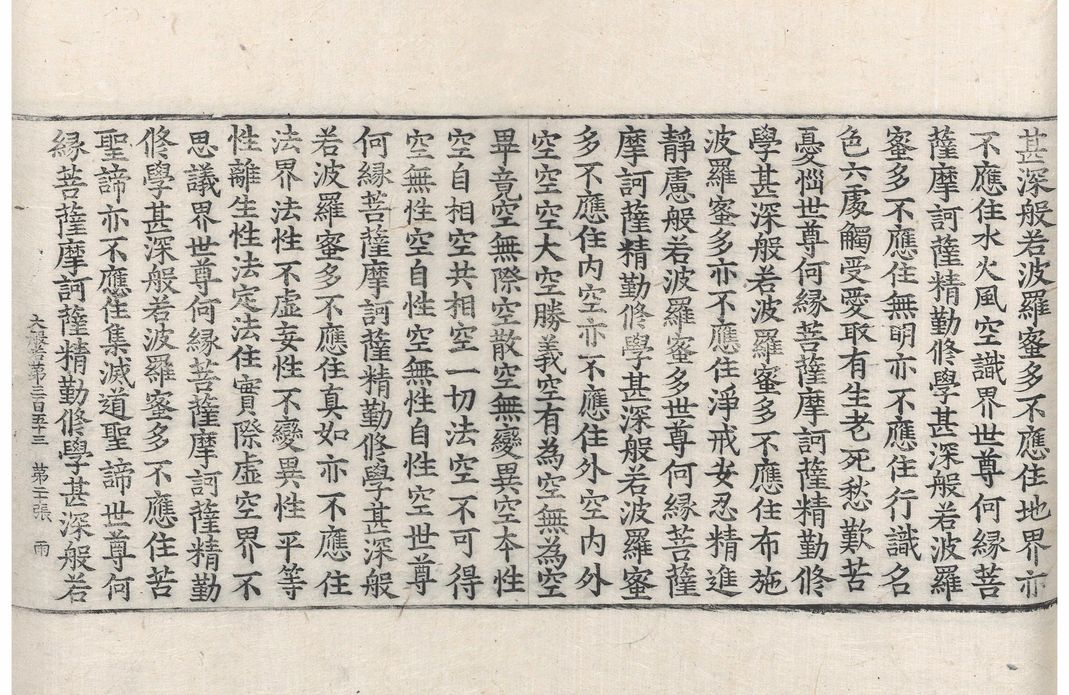 甚深般若波羅蜜多不應住地界亦
不應住水火風空識界世尊何緣菩
薩摩訶薩精勤修學甚深般若波羅
蜜多不應住無明亦不應住行識名
色六處觸受愛取有生老死愁歎苦
憂惱世尊何緣菩薩摩訶薩精勤修
學甚深般若波羅蜜多不應住布施
波羅蜜多亦不應住淨戒安忍精進
靜慮般若波羅蜜多世尊何緣菩薩
摩訶薩精勤修學甚深般若波羅蜜
多不應住內空亦不應住外空內外
空空空大空勝義空有為空無為空
畢竟空無際空散空無變異空本性
空自相空共相空一切法空不可得
空無性空自性空無性自性空世尊
何緣菩薩摩訶薩精勤修學甚深般
若波羅蜜多不應住真如亦不應住
法界法性不虛妄性不變異性平等
性離生性法定法住實際虛空界不
思議界世尊何緣菩薩摩訶薩精勤
修學甚深般若波羅蜜多不應住苦
聖諦亦不應住集滅道聖諦世尊何
緣菩薩摩訶薩精勤修學甚深般若
大般若第三百五十三 第二張 雨